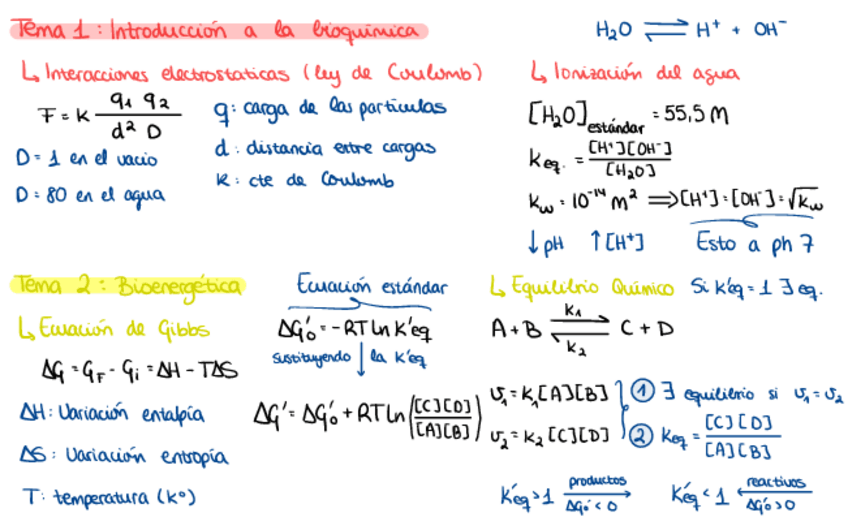 Tema 1: Introducción a la bioquímica
H₂O ⇌ H⁺ + OH⁻
↳ Interacciones electrostaticas (ley de Coulomb)
F = K q₁ q₂ / d² D
q: carga de las particulas
d: distancia entre cargas
K: cte de Coulomb
D = 1 en el vacio
D = 80 en el agua
↳ Ionización del agua
[H₂O] estándar = 55,5 M
Keq. = [H⁺][OH⁻] / [H₂O]
Kw = 10⁻¹⁴ M² ⟹ [H⁺] = [OH⁻] = √Kw
↓ pH ↑ [H⁺] Esto a ph 7
Tema 2: Bioenergética
↳ Ecuación de Gibbs
ΔG = GF - Gi = ΔH - TΔS
ΔH: Variación entalpía
ΔS: Variación entropía
T: temperatura (kº)
Ecuación estándar
ΔG'₀ = -RT Ln K'eq
sustituyendo ↓ la K'eq
ΔG' = ΔG'₀ + RT Ln ([C][D] / [A][B])
↳ Equilibrio Químico Si K'eq = 1 ∃ eq.
A + B ⇌ C + D
K₁
K₂
v₁ = K₁[A][B]
v₂ = K₂[C][D]
① ∃ equilibrio si v₁ = v₂
② Keq = [C][D] / [A][B]
K'eq > 1 productos → ΔG'₀ < 0
K'eq < 1 reactivos ← ΔG'₀ > 0